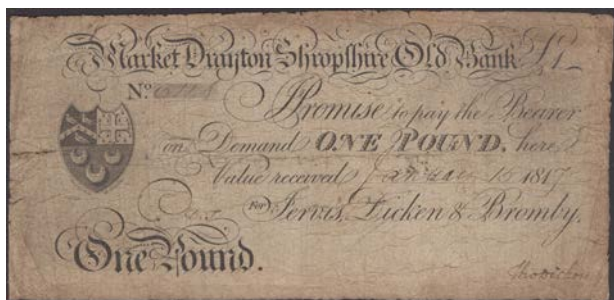 Market Drayton Shropshire Old Bank £1
No.
I Promise to pay the Bearer
on Demand ONE POUND, here
Value received January 16 1817
For Jervis, Dicken & Bromby.
One Pound.
Tho Dicken